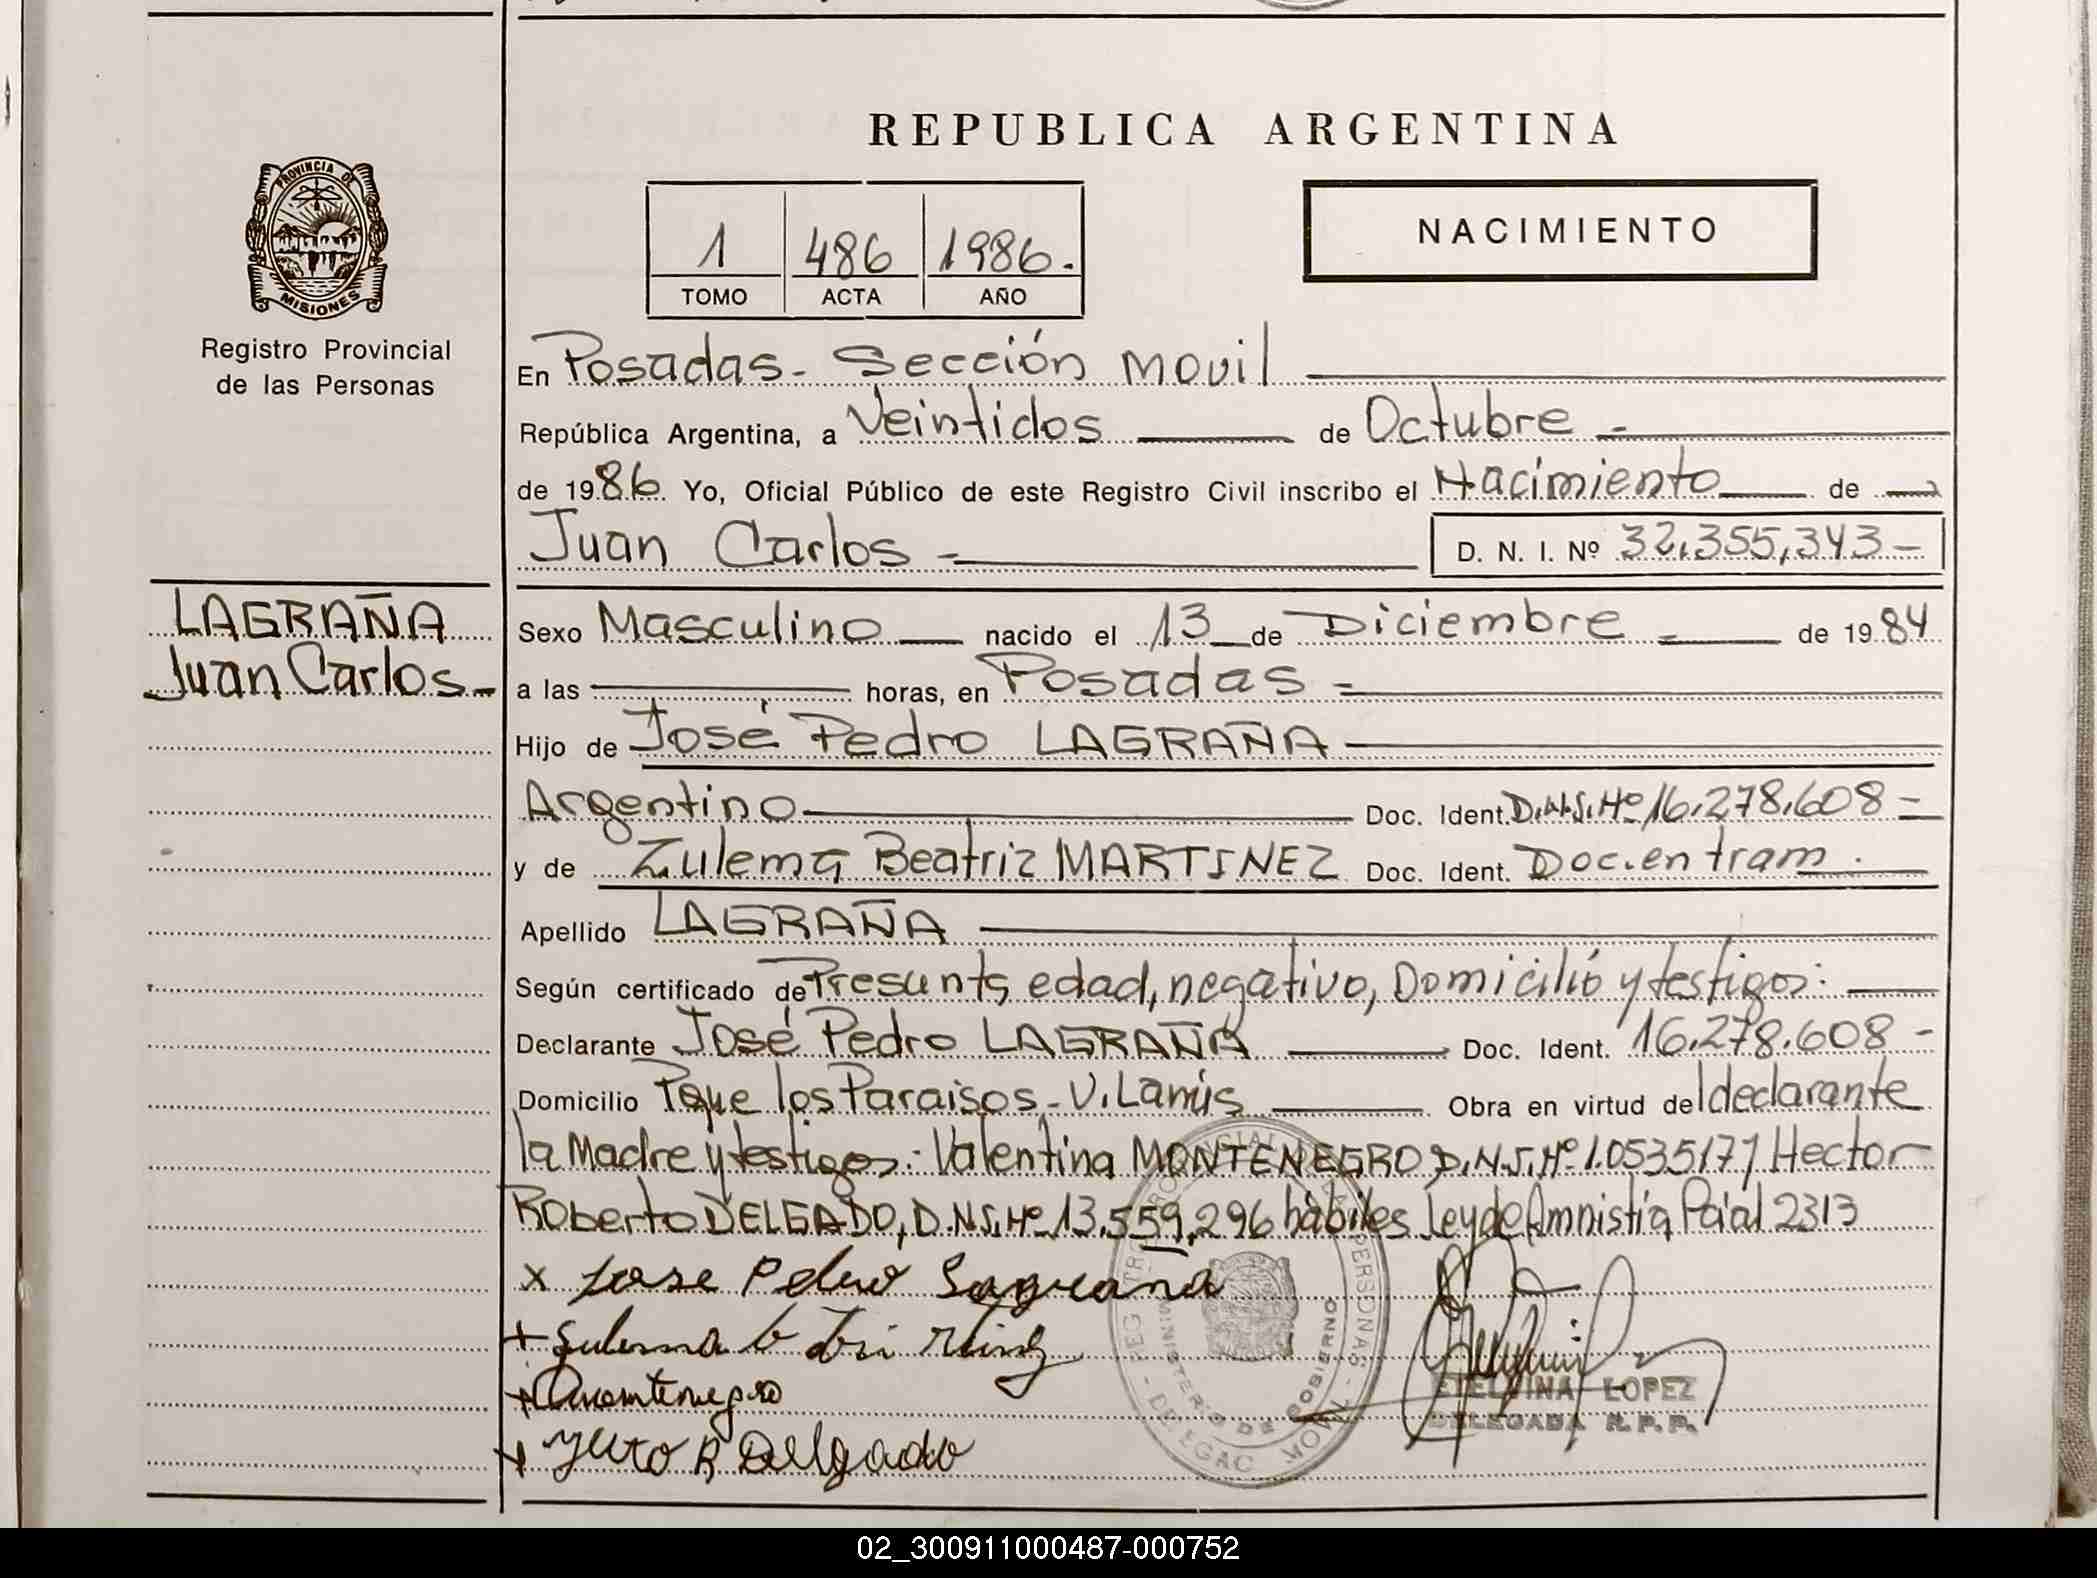 REPUBLICA ARGENTINA
PROVINCIA DE
MISIONES
Registro Provincial
de las Personas
1 486 1986.
TOMO ACTA AÑO
NACIMIENTO
En Posadas - Sección Movil
República Argentina, a Veintidos de Octubre
de 1986 Yo, Oficial Público de este Registro Civil inscribo el Nacimiento de
Juan Carlos D. N. I. Nº 32.355,343
LAGRAÑA
Juan Carlos
Sexo Masculino nacido el 13 de Diciembre de 1984
a las horas, en Posadas
Hijo de José Pedro LAGRAÑA
Argentino Doc. Ident. D.N.I. Nº 16.278.608
y de Zulema Beatriz MARTINEZ Doc. Ident. Doc. en tram.
Apellido LAGRAÑA
Según certificado de Presunta edad, negativo, Domicilio y testigos:
Declarante José Pedro LAGRAÑA Doc. Ident. 16.278.608
Domicilio Pque los Paraisos - V. Lanús Obra en virtud del declarante
la Madre y testigos: Valentina MONTENEGRO D.N.I. Nº Hector
Roberto DELGADO, D.N.I. Nº 13.559,296 hábiles Ley de Amnistia 2313
x Jose Pedro Lagraña
+
+ montenegro
+ R Delgado
MINISTERIO DE GOBIERNO
ETELVINA LOPEZ
DELEGADA R.P.P.
02_300911000487-000752